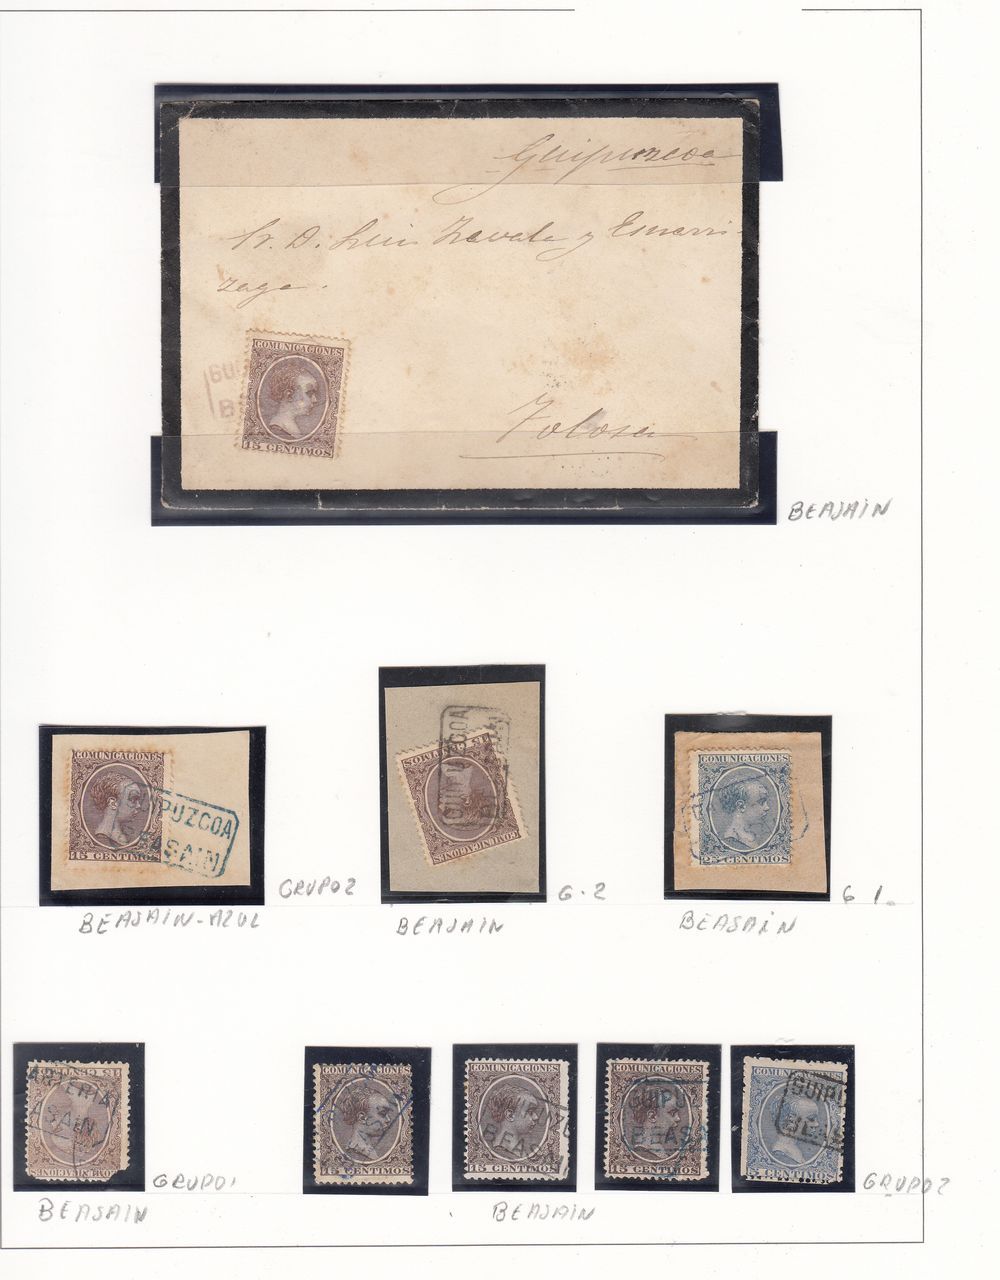 Guipuzcoa
Sr. D. Luis Zavala y Emarri-
zaga.
COMUNICACIONES
15 CENTIMOS
GUI
BE
Tolosa
BEASAIN
COMUNICACIONES
15 CENTIMOS
GUIPUZCOA
BEASAIN
GRUPO 2
BEASAIN-AZUL
GUIPUZCOA
COMUNICACIONES
15 CENTIMOS
G-2
BEASAIN
COMUNICACIONES
25 CENTIMOS
G 1.
BEASAIN
CARTERIA
EASAIN
COMUNICACIONES
15 CENTIMOS
GRUPO 1
BEASAIN
COMUNICACIONES
15 CENTIMOS
COMUNICACIONES
15 CENTIMOS
UIPUZC
BEASAI
COMUNICACIONES
15 CENTIMOS
GUIPU
BEASA
COMUNICACIONES
5 CENTIMOS
GUIPU
BEAS
GRUPO 2
BEASAIN